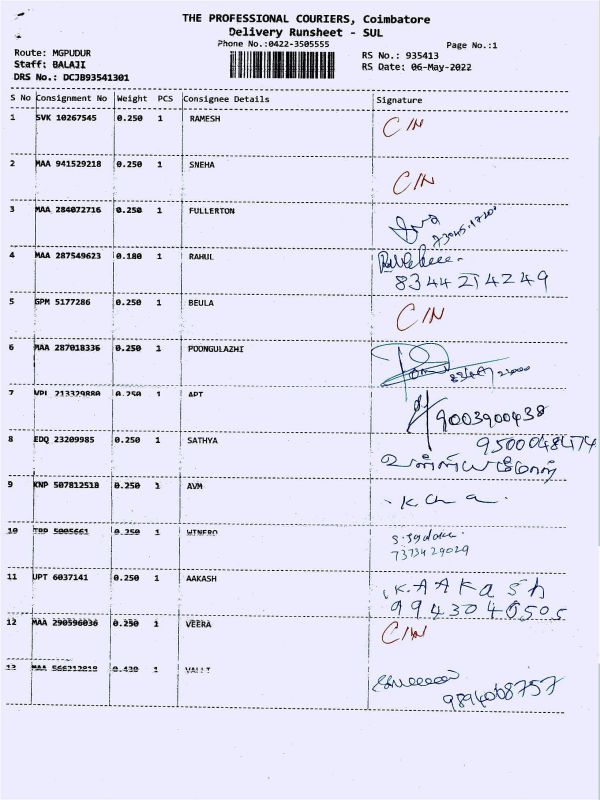 THE PROFESSIONAL COURIERS, Coimbatore
Delivery Runsheet - SUL
Phone No.:0422-3505555
Page No.:1
Route: MGPUDUR
Staff: BALAJI
DRS No.: DCJB93541301
RS No.: 935413
RS Date: 06-May-2022
S No Consignment No Weight PCS Consignee Details Signature
1 SVK 10267545 0.250 1 RAMESH C/N
2 MAA 941529218 0.250 1 SNEHA C/N
3 MAA 284072716 0.250 1 FULLERTON
4 MAA 287549623 0.180 1 RAHUL
8344214249
5 GPM 5177286 0.250 1 BEULA C/N
6 MAA 287018336 0.250 1 POONGULAZHI
7 VPL 213329880 0.250 1 APT 9003900438
8 EDQ 23209985 0.250 1 SATHYA 9500048474
9 KNP 507812518 0.250 1 AVM
10 TRP 5005661 0.250 1
7373429029
11 UPT 6037141 0.250 1 AAKASH K.AAKASH
9943040505
12 MAA 290596036 0.250 1 VEERA C/N
13 MAA 566212818 0.430 1 VALLI
9894068757